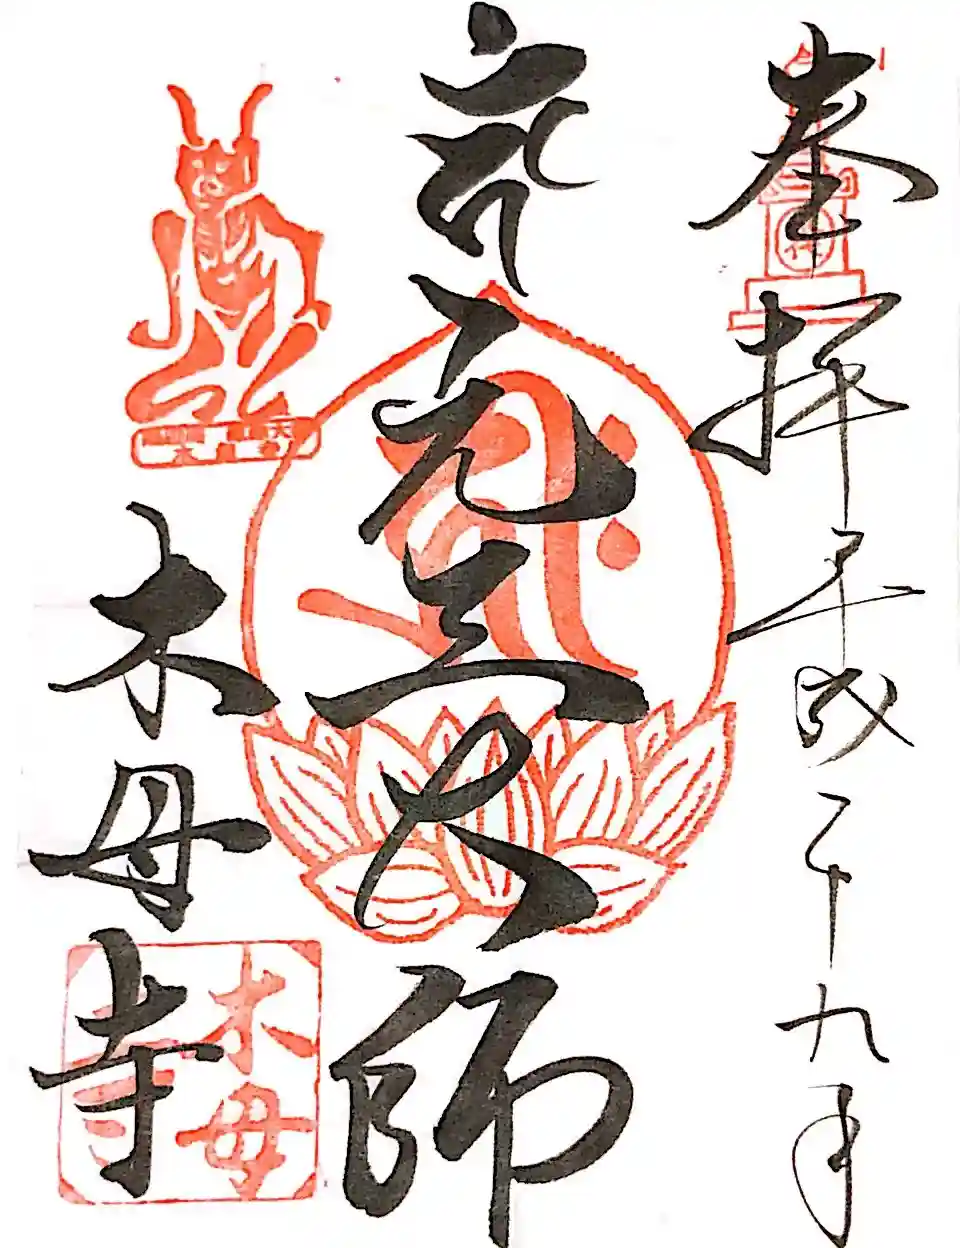 奉拝 平成二十九年
元三大師
木母寺
木母寺